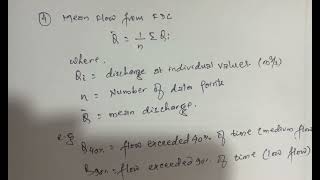 ④ Mean Flow from FDC
Q̄ = 1/n Σ Qi
where,
Qi = discharge at individual values (m³/s)
n = Number of data points
Q̄ = mean discharge.
e.g
Q40% = flow exceeded 40% of time (medium flow)
Q90% = flow exceeded 90% of time (low flow)